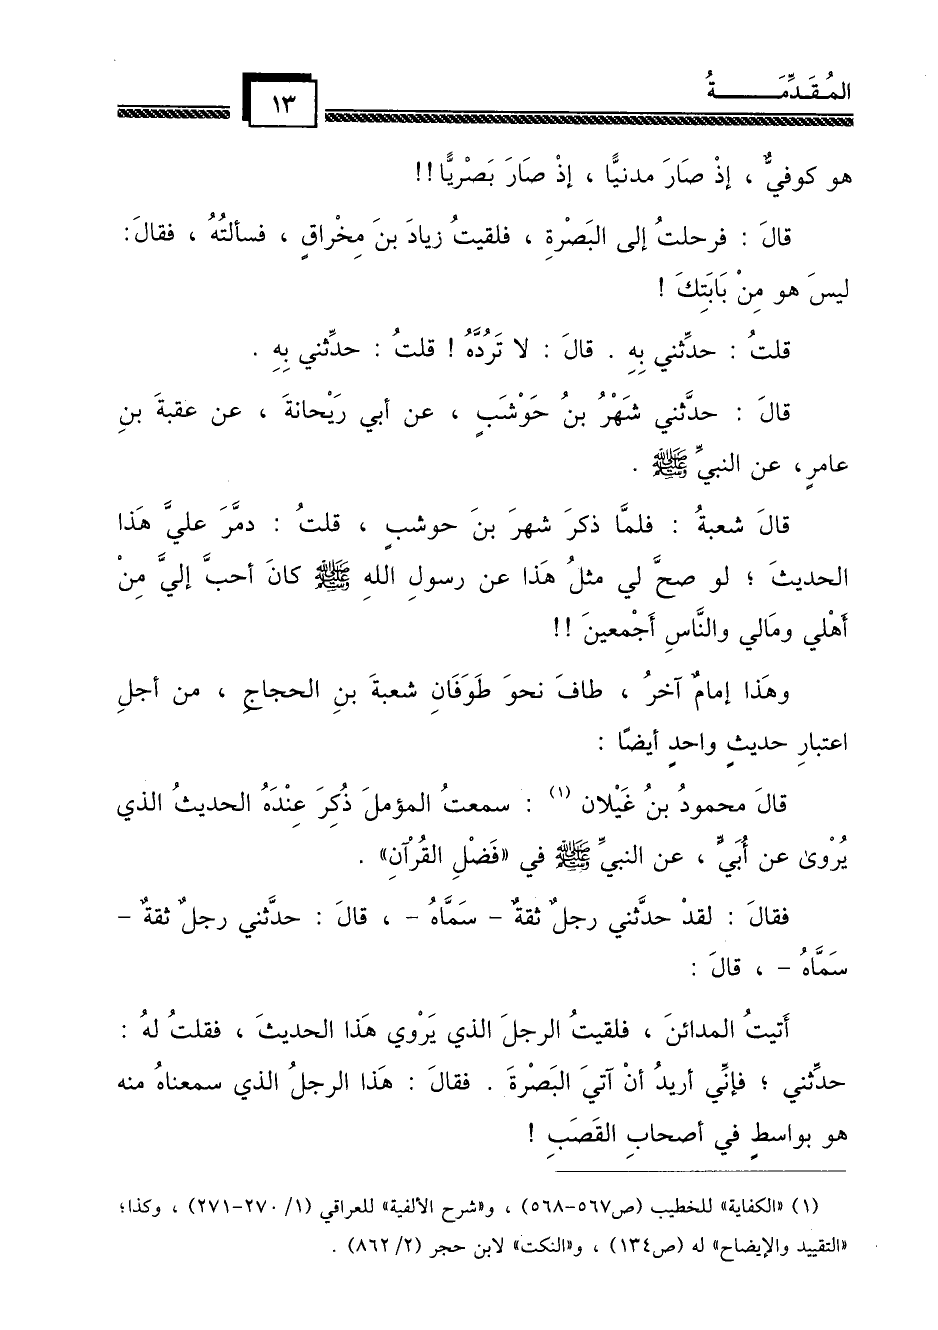 المُقَدِّمَةُ
١٣
هو كوفيٌّ ، إذْ صَارَ مدنيًّا ، إذْ صَارَ بَصْريًّا !!
قالَ : فرحلتُ إلى البَصْرةِ ، فلقيتُ زيادَ بنَ مِخْراقٍ ، فسألتُهُ ، فقالَ :
ليسَ هو مِنْ بَابَتِكَ !
قلتُ : حدِّثني بِهِ . قالَ : لا تَرُدَّهُ ! قلتُ : حدِّثني بِهِ .
قالَ : حدَّثني شَهْرُ بنُ حَوْشَبٍ ، عن أبي رَيْحانةَ ، عن عقبةَ بنِ
عامرٍ، عن النبيِّ ﷺ .
قالَ شعبةُ : فلمَّا ذكرَ شهرَ بنَ حوشبٍ ، قلتُ : دمَّرَ عليَّ هَذا
الحديثَ ؛ لو صحَّ لي مثلُ هَذا عن رسولِ اللهِ ﷺ كانَ أحبَّ إليَّ مِنْ
أَهْلي ومَالي والنَّاسِ أَجْمعينَ !!
وهَذا إمامٌ آخرُ ، طافَ نحوَ طَوَفَانِ شعبةَ بنِ الحجاجِ ، من أجلِ
اعتبارِ حديثٍ واحدٍ أيضًا :
قالَ محمودُ بنُ غَيْلان (١) : سمعتُ المؤملَ ذُكِرَ عِنْدَهُ الحديثُ الذي
يُرْوىٰ عن أُبَيٍّ ، عن النبيِّ ﷺ في «فَضْلِ القُرْآنِ» .
فقالَ : لقدْ حدَّثني رجلٌ ثقةٌ – سَمَّاهُ – ، قالَ : حدَّثني رجلٌ ثقةٌ –
سَمَّاهُ – ، قالَ :
أَتيتُ المدائنَ ، فلقيتُ الرجلَ الذي يَرْوي هَذا الحديثَ ، فقلتُ لهُ :
حدِّثني ؛ فإنِّي أريدُ أنْ آتيَ البَصْرةَ . فقالَ : هَذا الرجلُ الذي سمعناهُ منه
هو بواسطٍ في أصحابِ القَصَبِ !
(١) «الكفاية» للخطيب (ص٥٦٧-٥٦٨) ، و«شرح الألفية» للعراقي (١/ ٢٧٠-٢٧١) ، وكذا؛
«التقييد والإيضاح» له (ص١٣٤) ، و«النكت» لابن حجر (٢/ ٨٦٢) .